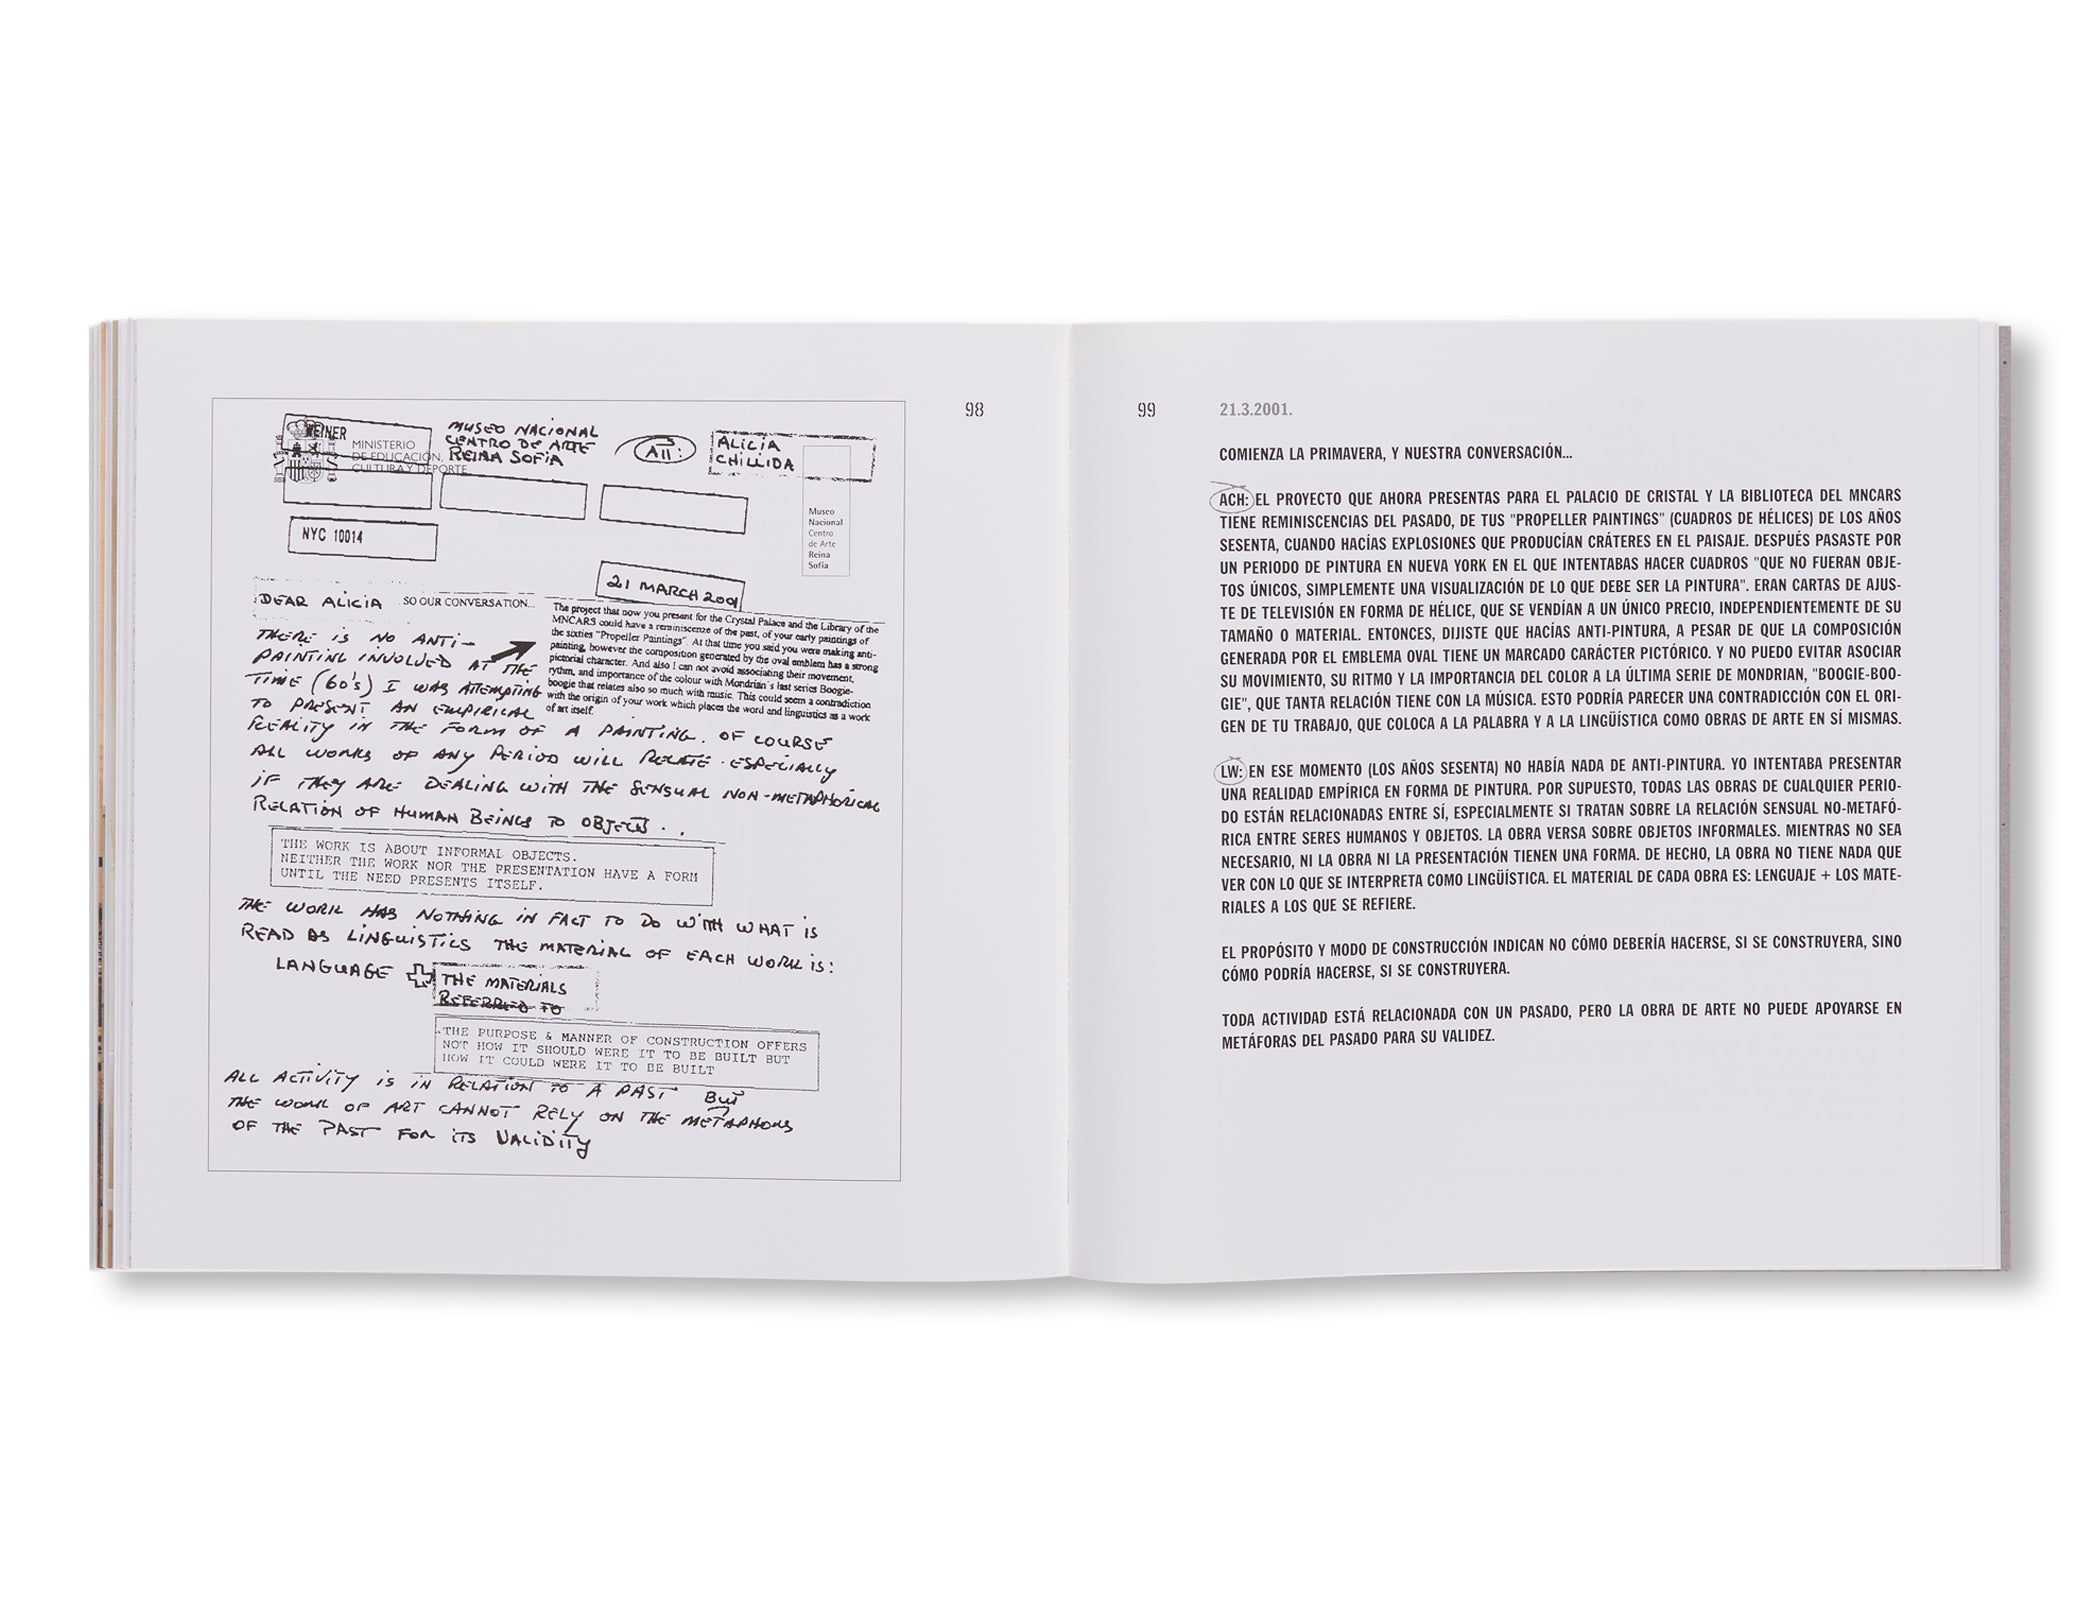 WEINER
MINISTERIO
DE EDUCACIÓN,
CULTURA Y DEPORTE
MUSEO NACIONAL
CENTRO DE ARTE
REINA SOFÍA
ATT:
ALICIA
CHILLIDA
Museo
Nacional
Centro
de Arte
Reina
Sofía
NYC 10014
21 MARCH 2001
DEAR ALICIA
SO OUR CONVERSATION...
The project that now you present for the Crystal Palace and the Library of the
MNCARS could have a reminiscenze of the past, of your early paintings of
the sixties "Propeller Paintings". At that time you said you were making anti-
painting, however the composition generated by the oval emblem has a strong
pictorial character. And also I can not avoid associating their movement,
rythm, and importance of the colour with Mondrian´s last series Boogie-
boogie that relates also so much with music. This could seem a contradiction
with the origin of your work which places the word and linguistics as a work
of art itself.
THERE IS NO ANTI-
PAINTING INVOLVED AT THE
TIME (60'S) I WAS ATTEMPTING
TO PRESENT AN EMPIRICAL
REALITY IN THE FORM OF A PAINTING. OF COURSE
ALL WORKS OF ANY PERIOD WILL RELATE. ESPECIALLY
IF THEY ARE DEALING WITH THE SENSUAL NON-METAPHORICAL
RELATION OF HUMAN BEINGS TO OBJECTS...
THE WORK IS ABOUT INFORMAL OBJECTS.
NEITHER THE WORK NOR THE PRESENTATION HAVE A FORM
UNTIL THE NEED PRESENTS ITSELF.
THE WORK HAS NOTHING IN FACT TO DO WITH WHAT IS
READ AS LINGUISTICS THE MATERIAL OF EACH WORK IS:
LANGUAGE + THE MATERIALS
REFERRED TO
THE PURPOSE & MANNER OF CONSTRUCTION OFFERS
NOT HOW IT SHOULD WERE IT TO BE BUILT BUT
HOW IT COULD WERE IT TO BE BUILT
ALL ACTIVITY IS IN RELATION TO A PAST BUT
THE WORK OF ART CANNOT RELY ON THE METAPHORS
OF THE PAST FOR ITS VALIDITY
98
99
21.3.2001.
COMIENZA LA PRIMAVERA, Y NUESTRA CONVERSACIÓN...
ACH: EL PROYECTO QUE AHORA PRESENTAS PARA EL PALACIO DE CRISTAL Y LA BIBLIOTECA DEL MNCARS
TIENE REMINISCENCIAS DEL PASADO, DE TUS "PROPELLER PAINTINGS" (CUADROS DE HÉLICES) DE LOS AÑOS
SESENTA, CUANDO HACÍAS EXPLOSIONES QUE PRODUCÍAN CRÁTERES EN EL PAISAJE. DESPUÉS PASASTE POR
UN PERIODO DE PINTURA EN NUEVA YORK EN EL QUE INTENTABAS HACER CUADROS "QUE NO FUERAN OBJE-
TOS ÚNICOS, SIMPLEMENTE UNA VISUALIZACIÓN DE LO QUE DEBE SER LA PINTURA". ERAN CARTAS DE AJUS-
TE DE TELEVISIÓN EN FORMA DE HÉLICE, QUE SE VENDÍAN A UN ÚNICO PRECIO, INDEPENDIENTEMENTE DE SU
TAMAÑO O MATERIAL. ENTONCES, DIJISTE QUE HACÍAS ANTI-PINTURA, A PESAR DE QUE LA COMPOSICIÓN
GENERADA POR EL EMBLEMA OVAL TIENE UN MARCADO CARÁCTER PICTÓRICO. Y NO PUEDO EVITAR ASOCIAR
SU MOVIMIENTO, SU RITMO Y LA IMPORTANCIA DEL COLOR A LA ÚLTIMA SERIE DE MONDRIAN, "BOOGIE-BOO-
GIE", QUE TANTA RELACIÓN TIENE CON LA MÚSICA. ESTO PODRÍA PARECER UNA CONTRADICCIÓN CON EL ORI-
GEN DE TU TRABAJO, QUE COLOCA A LA PALABRA Y A LA LINGÜÍSTICA COMO OBRAS DE ARTE EN SÍ MISMAS.
LW: EN ESE MOMENTO (LOS AÑOS SESENTA) NO HABÍA NADA DE ANTI-PINTURA. YO INTENTABA PRESENTAR
UNA REALIDAD EMPÍRICA EN FORMA DE PINTURA. POR SUPUESTO, TODAS LAS OBRAS DE CUALQUIER PERIO-
DO ESTÁN RELACIONADAS ENTRE SÍ, ESPECIALMENTE SI TRATAN SOBRE LA RELACIÓN SENSUAL NO-METAFÓ-
RICA ENTRE SERES HUMANOS Y OBJETOS. LA OBRA VERSA SOBRE OBJETOS INFORMALES. MIENTRAS NO SEA
NECESARIO, NI LA OBRA NI LA PRESENTACIÓN TIENEN UNA FORMA. DE HECHO, LA OBRA NO TIENE NADA QUE
VER CON LO QUE SE INTERPRETA COMO LINGÜÍSTICA. EL MATERIAL DE CADA OBRA ES: LENGUAJE + LOS MATE-
RIALES A LOS QUE SE REFIERE.
EL PROPÓSITO Y MODO DE CONSTRUCCIÓN INDICAN NO CÓMO DEBERÍA HACERSE, SI SE CONSTRUYERA, SINO
CÓMO PODRÍA HACERSE, SI SE CONSTRUYERA.
TODA ACTIVIDAD ESTÁ RELACIONADA CON UN PASADO, PERO LA OBRA DE ARTE NO PUEDE APOYARSE EN
METÁFORAS DEL PASADO PARA SU VALIDEZ.